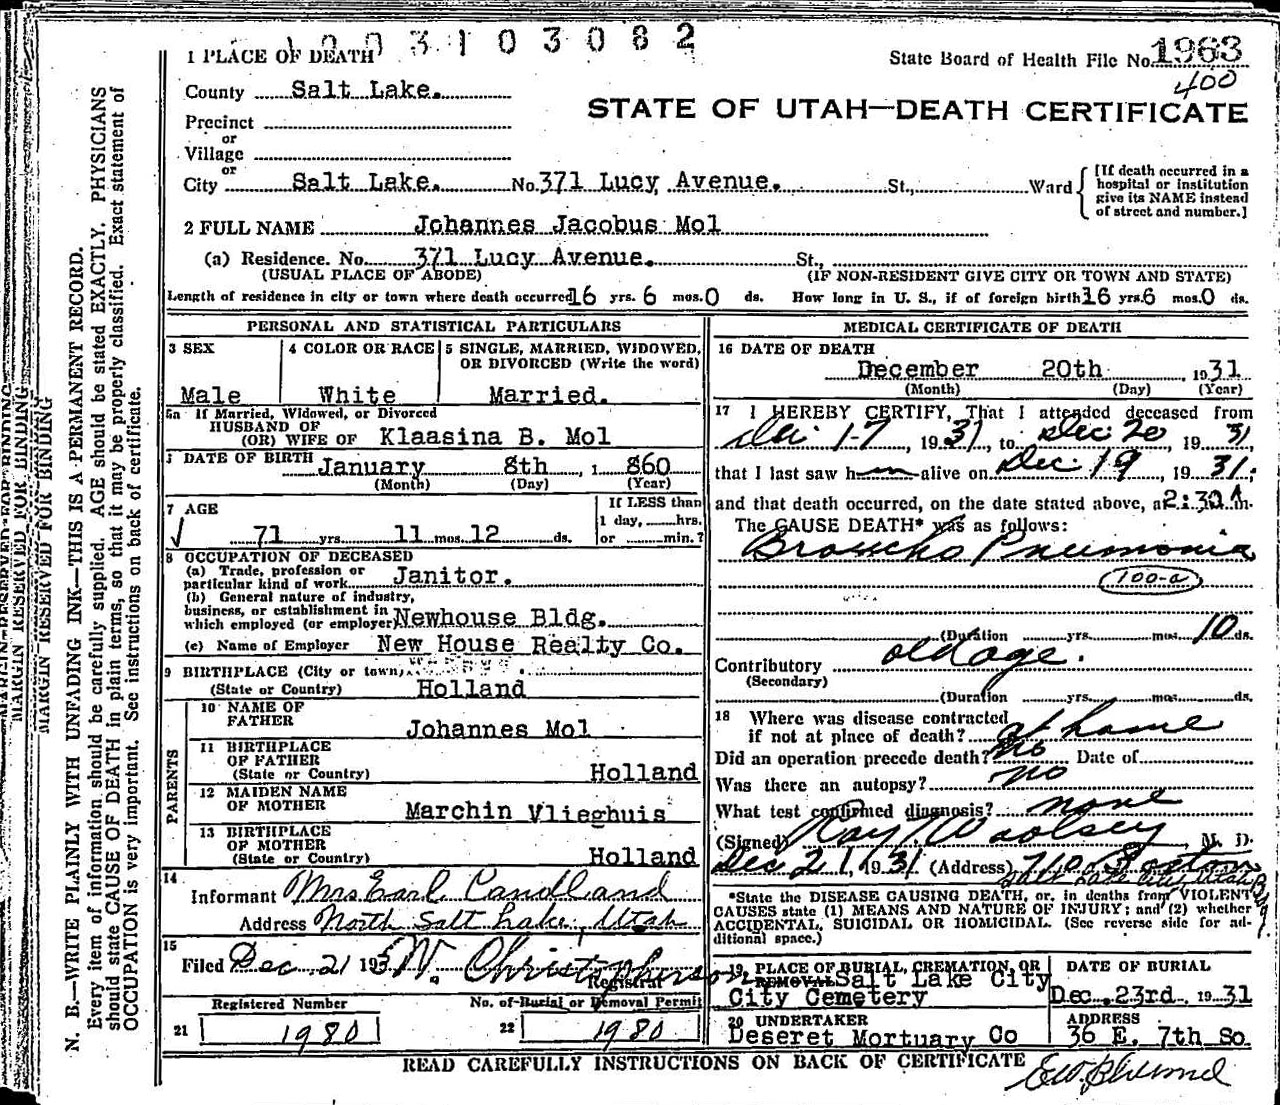 1003103082
1 PLACE OF DEATH
State Board of Health File No. 1963
400
County Salt Lake.
STATE OF UTAH—DEATH CERTIFICATE
Precinct
or
Village
or
City Salt Lake. No. 371 Lucy Avenue. St., Ward
[If death occurred in a
hospital or institution
give its NAME instead
of street and number.]
2 FULL NAME Johannes Jacobus Mol
(a) Residence. No. 371 Lucy Avenue. St.,
(USUAL PLACE OF ABODE) (IF NON-RESIDENT GIVE CITY OR TOWN AND STATE)
Length of residence in city or town where death occurred 16 yrs. 6 mos. 0 ds. How long in U. S., if of foreign birth 16 yrs. 6 mos. 0 ds.
PERSONAL AND STATISTICAL PARTICULARS
3 SEX
Male
4 COLOR OR RACE
White
5 SINGLE, MARRIED, WIDOWED,
OR DIVORCED (Write the word)
Married.
5a If Married, Widowed, or Divorced
HUSBAND OF
(OR) WIFE OF Klaasina B. Mol
DATE OF BIRTH January 8th, 1 860
(Month) (Day) (Year)
7 AGE
71 yrs. 11 mos. 12 ds.
If LESS than
1 day, hrs.
or min.?
8 OCCUPATION OF DECEASED
(a) Trade, profession or
particular kind of work Janitor.
(b) General nature of industry,
business, or establishment in
which employed (or employer) Newhouse Bldg.
(c) Name of Employer New House Realty Co.
9 BIRTHPLACE (City or town)
(State or Country) Holland
PARENTS
10 NAME OF
FATHER Johannes Mol
11 BIRTHPLACE
OF FATHER
(State or Country) Holland
12 MAIDEN NAME
OF MOTHER Marchin Vlieghuis
13 BIRTHPLACE
OF MOTHER
(State or Country) Holland
14
Informant Mrs Earl Candland
Address North Salt Lake, Utah
15
Filed Dec 21 193 W. Christopherson
Registrar
Registered Number No. of Burial or Removal Permit
21 1980 22 1980
MEDICAL CERTIFICATE OF DEATH
16 DATE OF DEATH
December 20th 1931
(Month) (Day) (Year)
17 I HEREBY CERTIFY, That I attended deceased from
Dec 17, 1931, to Dec 20, 1931
that I last saw him alive on Dec 19, 1931;
and that death occurred, on the date stated above, at 2:30 A m.
The CAUSE DEATH* was as follows:
Broncho Pneumonia
100-a
(Duration yrs. mos. 10 ds.
Contributory old age.
(Secondary)
(Duration yrs. mos. ds.
18 Where was disease contracted
if not at place of death? at home
Did an operation precede death? no Date of
Was there an autopsy? no
What test confirmed diagnosis? none
(Signed) Ray Woolsey M. D.
Dec 21, 1931 (Address) 710 Boston
Salt Lake City Utah Bldg.
*State the DISEASE CAUSING DEATH, or, in deaths from VIOLENT
CAUSES state (1) MEANS AND NATURE OF INJURY; and (2) whether
ACCIDENTAL, SUICIDAL OR HOMICIDAL. (See reverse side for ad-
ditional space.)
19 PLACE OF BURIAL, CREMATION, OR
REMOVAL Salt Lake City
City Cemetery
DATE OF BURIAL
Dec. 23rd, 1931
20 UNDERTAKER
Deseret Mortuary Co
ADDRESS
36 E. 7th So.
READ CAREFULLY INSTRUCTIONS ON BACK OF CERTIFICATE
MARGIN RESERVED FOR BINDING
MARGIN RESERVED FOR BINDING
MARGIN RESERVED FOR BINDING
N. B.—WRITE PLAINLY WITH UNFADING INK—THIS IS A PERMANENT RECORD.
Every item of information should be carefully supplied. AGE should be stated EXACTLY. PHYSICIANS
should state CAUSE OF DEATH in plain terms, so that it may be properly classified. Exact statement of
OCCUPATION is very important. See instructions on back of certificate.